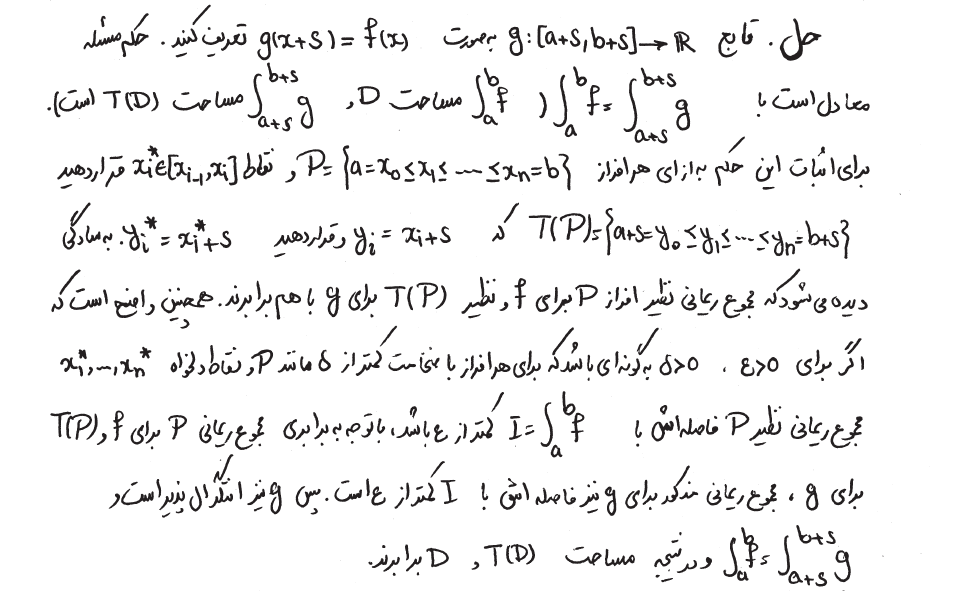 حل. تابع g:[a+s,b+s]→ℝ به‌صورت g(x+s)=f(x) تعریف کنید. حکم مسئله
معادل است با ∫_a^b f = ∫_{a+s}^{b+s} g (∫_a^b f مساحت D و ∫_{a+s}^{b+s} g مساحت T(D) است).
برای اثبات این حکم به‌ازای هر افراز P={a=x₀≤x₁≤⋯≤xₙ=b} و نقاط xᵢ*∈[xᵢ₋₁,xᵢ] قرار دهید
T(P)={a+s=y₀≤y₁≤⋯≤yₙ=b+s} که yᵢ=xᵢ+s و قرار دهید yᵢ*=xᵢ*+s. به سادگی
دیده می‌شود که مجموع ریمانی نظیر افراز P برای f و نظیر T(P) برای g با هم برابرند. همچنین واضح است که
اگر برای ε>0، δ>0 به گونه‌ای باشد که برای هر افراز با ضخامت کمتر از δ مانند P و نقاط دلخواه x₁*,…,xₙ*
مجموع ریمانی نظیر P فاصله‌اش با I=∫_a^b f کمتر از ε باشد، با توجه به برابری مجموع ریمانی P برای f و T(P)
برای g، مجموع ریمانی مذکور برای g نیز فاصله‌اش با I کمتر از ε است. پس g نیز انتگرال پذیر است و
∫_a^b f = ∫_{a+s}^{b+s} g و در نتیجه مساحت T(D) و D برابرند.